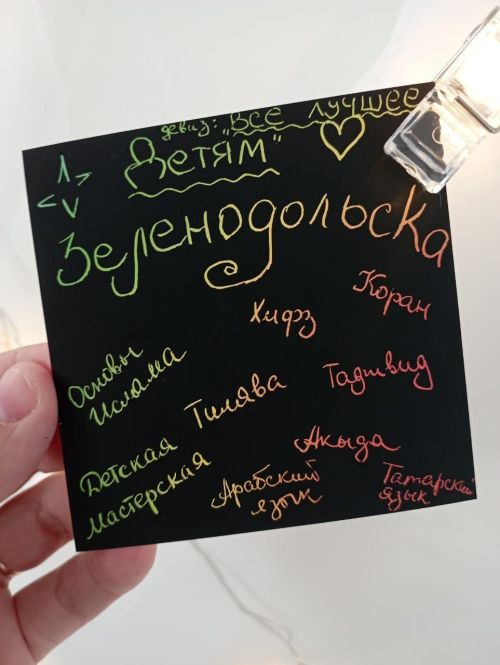 девиз: "Все лучшее
Детям"
Зеленодольска
Коран
Хифз
Основы
Ислама
Тилява
Таджвид
Акыда
Детская
Мастерская
Арабский
язык
Татарский
язык